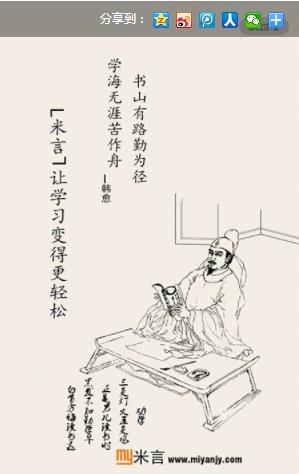 分享到：
书山有路勤为径
学海无涯苦作舟
—韩愈
「米言」让学习变得更轻松
劝学
三更灯火五更鸡
正是男儿读书时
黑发不知勤学早
白首方悔读书迟
my米言 www.miyanjy.com